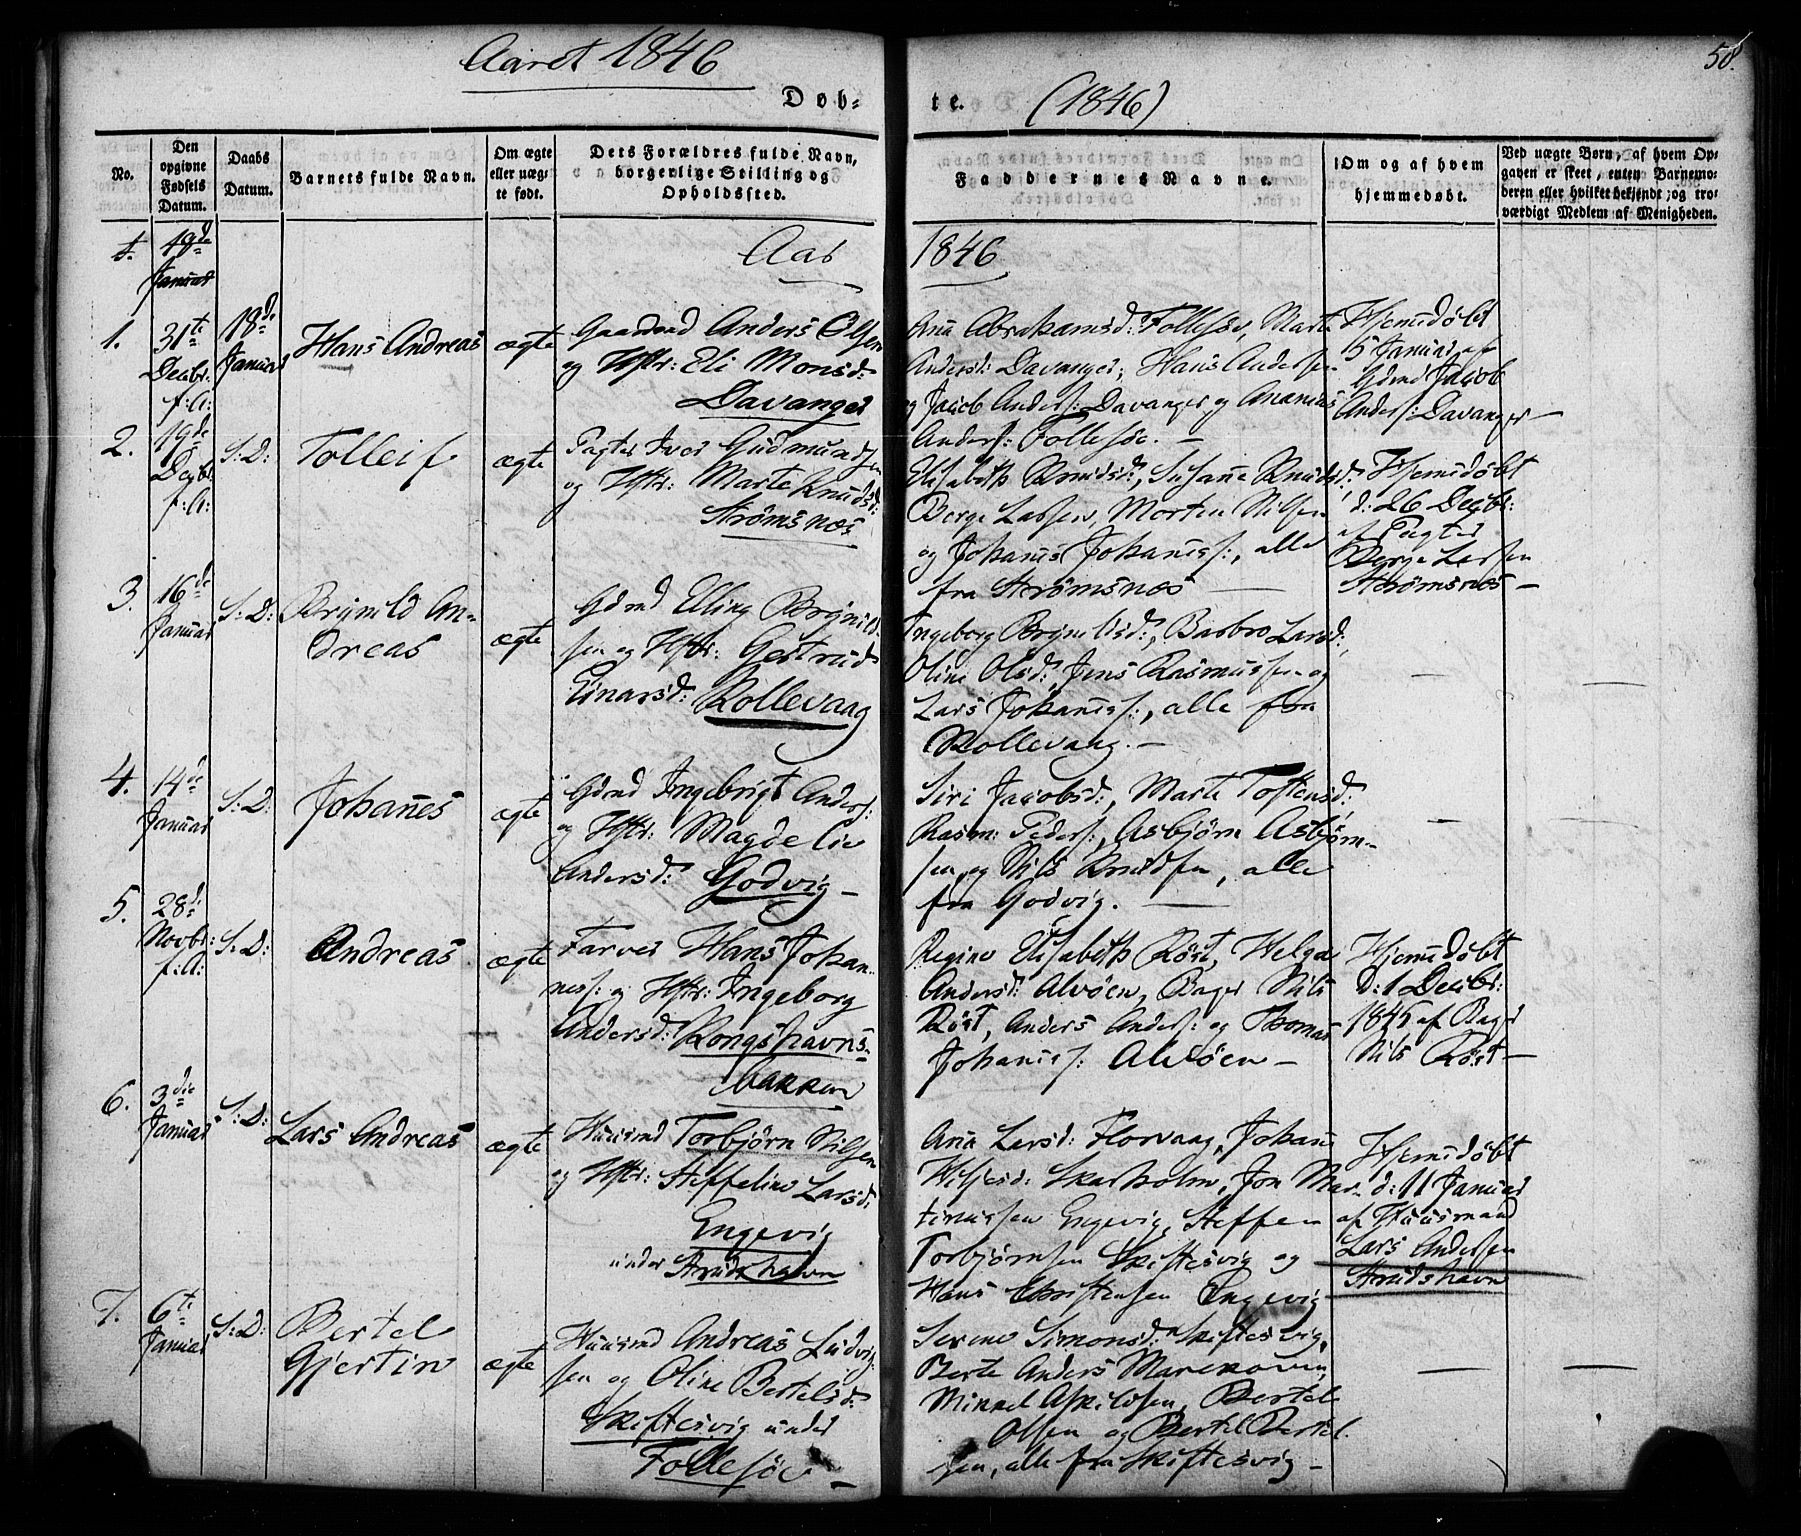 Aaret 1846
58.
Døb- te. (1846)
No.
Den opgivne Fødsels Datum.
Daabs Datum.
Barnets fulde Navn.
Om ægte eller uægte født.
Dets Forældres fulde Navn, borgerlige Stilling og Opholdssted.
Faddernes Navne.
Om og af hvem hjemmedøbt.
Ved uægte Børn, af hvem Opgaven er skeet, enten Barnemoderen eller hvilket bekjendt og troværdigt Medlem af Menigheden.
18de
Januar
1846
1.
31te
Decbr:
f: A:
18de
Januar
Hans Andreas
ægte
Gaardmd Anders Olsen
og Hstr: Eli Monsd:
Davanger
Ana Abrahamsd: Follesøe, Marte
Andersd: Davanger, Hans Andersen
og Jacob Anders: Davanger og Ananias
Anders: Follesøe. —
Hjemedøbt
15 Januar af
Gdmd Jacob
Anders: Davanger —
2.
19de
Decbr:
f: A:
S: D:
Tolleif
ægte
Pagter Iver Gudmundsen
og Hstr: Marte Knudsd:
Strømsnæs
Elisabeth Knudsd:, Susanne Knudsd:
Berge Larsen, Morten Nilsen
og Johanes Johaness:, alle
fra Strømsnæs —
Hjemedøbt
d: 26 Decbr:
af Pagter
Berge Larsen
Strømsnæs —
3.
16de
Januar
S: D:
Brynild An-
dreas
ægte
Gdmd Elling Brynild-
sen og Hstr: Gertrud
Einarsd: Rollevaag
Ingeborg Brynildsd:, Barbro Larsd:,
Oline Olsd:, Jens Rasmussen og
Lars Johaness:, alle fra
Rollevaag. —
4.
14de
Januar
S: D:
Johanes
ægte
Gdmd Ingebrigt Anders:
og Hstr: Magdelie
Andersd: Godvig —
Siri Jacobsd:, Marte Tostensd:
Rasm: Peders:, Asbjørn Asbjørn-
sen og Nils Knudsen, alle
fra Godvig. —
5.
28de
Novbr:
f: A:
S: D:
Andreas
ægte
Farver Hans Johan-
ness: og Hstr: Ingeborg
Andersd: Kongshavns-
bakken
Regine Elisabeth Røst, Helga
Andersd: Alvøen, Bager Nils
Røst, Anders Anders: og Thomas
Johaness: Alvøen —
Hjemedøbt
D: 1 Decbr:
1845 af Bager
Nils Røst —
6.
3die
Januar
S: D:
Lars Andreas
ægte
Huusmd Torbjørn Nilsen
og Hstr: Steffeline Larsd:
Engevig
under Strudshavn
Ana Larsd: Florvaag, Johane
Skarholm, Jon Mar-
tinussen Engevig, Steffen
Torbjørnsen Skiftesvig og
Hans Christensen Engevig
Hjemedøbt
d: 11 Januar
af Huusmand
Lars Andersen
Strudshavn
7.
6te
Januar
S: D:
Bertel
Gjertin
ægte
Huusmd Andreas Ludvig-
sen og Oline Bertelsd:
Skiftesvig under
Follesøe —
Serene Simonsd: Skiftesvig,
Berte Anders
Mikkel Askildsen, Bertel
Olsen og Bertel Bertel-
sen, alle fra Skiftesvig —